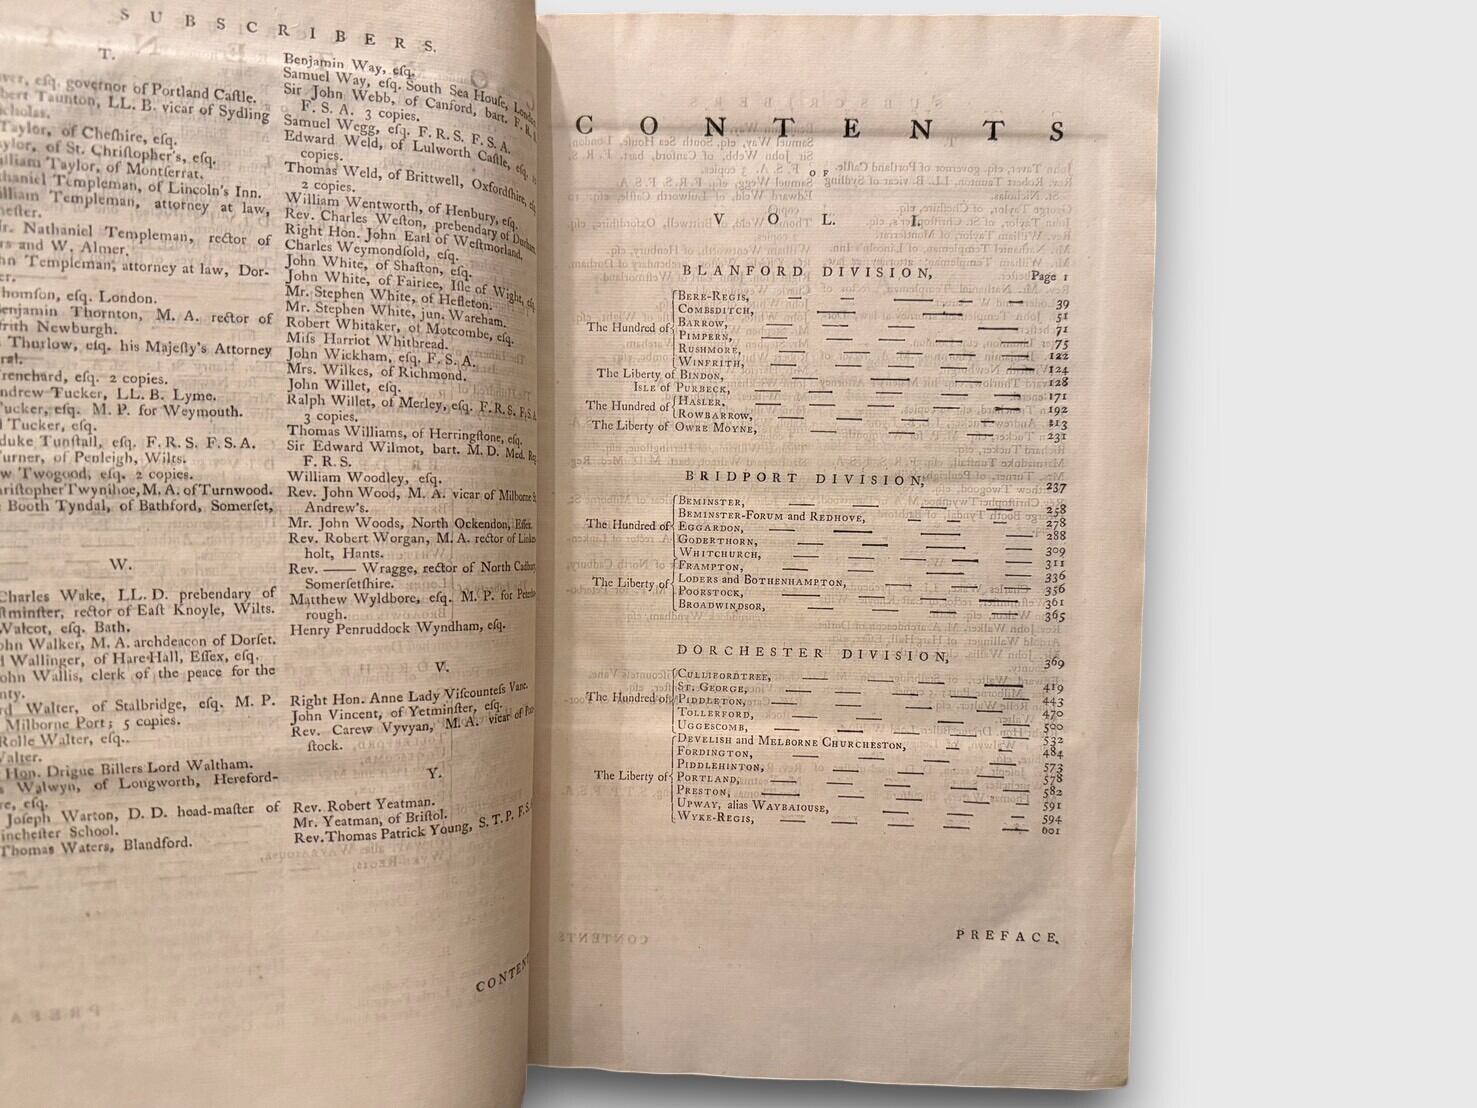 SUBSCRIBERS.
T.
esq. governor of Portland Caſtle.
Taunton, LL. B. vicar of Sydling
Taylor, of Cheſhire, eſq.
of St. Chriſtopher's, eſq.
Taylor, of Montſerrat.
Templeman, of Lincoln's Inn.
Templeman, attorney at law,
Nathaniel Templeman, rector of
and W. Almer.
Templeman, attorney at law, Dor-
eſq. London.
Thornton, M. A. rector of
Newburgh.
Thurlow, eſq. his Majeſty's Attorney
eſq. 2 copies.
Tucker, LL. B. Lyme.
eſq. M. P. for Weymouth.
Tucker, eſq.
Tunſtall, eſq. F. R. S. F. S. A.
of Penleigh, Wilts.
Twogood, eſq. 2 copies.
Twynihoe, M. A. of Turnwood.
Booth Tyndal, of Bathford, Somerſet,
W.
Charles Wake, LL. D. prebendary of
rector of Eaſt Knoyle, Wilts.
Walcot, eſq. Bath.
Walker, M. A. archdeacon of Dorſet.
Wallinger, of Hare-Hall, Eſſex, eſq.
Wallis, clerk of the peace for the
Walter, of Stalbridge, eſq. M. P.
Milborne Port; 5 copies.
Rolle Walter, eſq.
Hon. Drigue Billers Lord Waltham.
Walwyn, of Longworth, Hereford-
eſq.
Joſeph Warton, D. D. head-maſter of
School.
Thomas Waters, Blandford.
Benjamin Way, eſq.
Samuel Way, eſq. South Sea Houſe, London.
Sir John Webb, of Canford, bart. F. R.
F. S. A. 3 copies.
Samuel Wegg, eſq. F. R. S. F. S. A.
Edward Weld, of Lulworth Caſtle, eſq.
copies.
Thomas Weld, of Brittwell, Oxfordſhire, eſq.
2 copies.
William Wentworth, of Henbury, eſq.
Rev. Charles Weſton, prebendary of Durham.
Right Hon. John Earl of Weſtmorland.
Charles Weymondſold, eſq.
John White, of Shaſton, eſq.
John White, of Fairlee, Iſle of Wight, eſq.
Mr. Stephen White, of Heſleton.
Mr. Stephen White, jun. Wareham.
Robert Whitaker, of Motcombe, eſq.
Miſs Harriot Whitbread.
John Wickham, eſq. F. S. A.
Mrs. Wilkes, of Richmond.
John Willet, eſq.
Ralph Willet, of Merley, eſq. F. R. S. F. S. A.
3 copies.
Thomas Williams, of Herringſtone, eſq.
Sir Edward Wilmot, bart. M. D. Med. Reg.
F. R. S.
William Woodley, eſq.
Rev. John Wood, M. A. vicar of Milborne
Andrew's.
Mr. John Woods, North Ockendon, Eſſex.
Rev. Robert Worgan, M. A. rector of
holt, Hants.
Rev. —— Wragge, rector of North Cadbury,
Somerſetſhire.
Matthew Wyldbore, eſq. M. P. for
rough.
Henry Penruddock Wyndham, eſq.
V.
Right Hon. Anne Lady Viſcounteſs Vane.
John Vincent, of Yetminſter, eſq.
Rev. Carew Vyvyan, M. A. vicar of
ſtock.
Y.
Rev. Robert Yeatman.
Mr. Yeatman, of Briſtol.
Rev. Thomas Patrick Young, S. T. P. F. S. A.
CONTENTS
OF
VOL. I.
BLANFORD DIVISION, Page 1
The Hundred of
BERE-REGIS, 39
COMBSDITCH, 51
BARROW, 71
PIMPERN, 75
RUSHMORE, 122
WINFRITH, 124
The Liberty of BINDON, 128
ISLE OF PURBECK, 171
The Hundred of
HASLER, 192
ROWBARROW, 213
The Liberty of OWRE MOYNE, 231
BRIDPORT DIVISION, 237
The Hundred of
BEMINSTER, 258
BEMINSTER-FORUM and REDHOVE, 278
EGGARDON, 288
GODERTHORN, 309
WHITCHURCH, 311
The Liberty of
FRAMPTON, 336
LODERS and BOTHENHAMPTON, 356
POORSTOCK, 361
BROADWINDSOR, 365
DORCHESTER DIVISION, 369
The Hundred of
CULLIFORDTREE, 419
ST. GEORGE, 443
PIDDLETON, 470
TOLLERFORD, 500
UGGESCOMB, 532
The Liberty of
DEVELISH and MELBORNE CHURCHESTON, 484
FORDINGTON, 573
PIDDLEHINTON, 578
PORTLAND, 582
PRESTON, 591
UPWAY, alias WAYBAIOUSE, 594
WYKE-REGIS, 601
PREFACE.